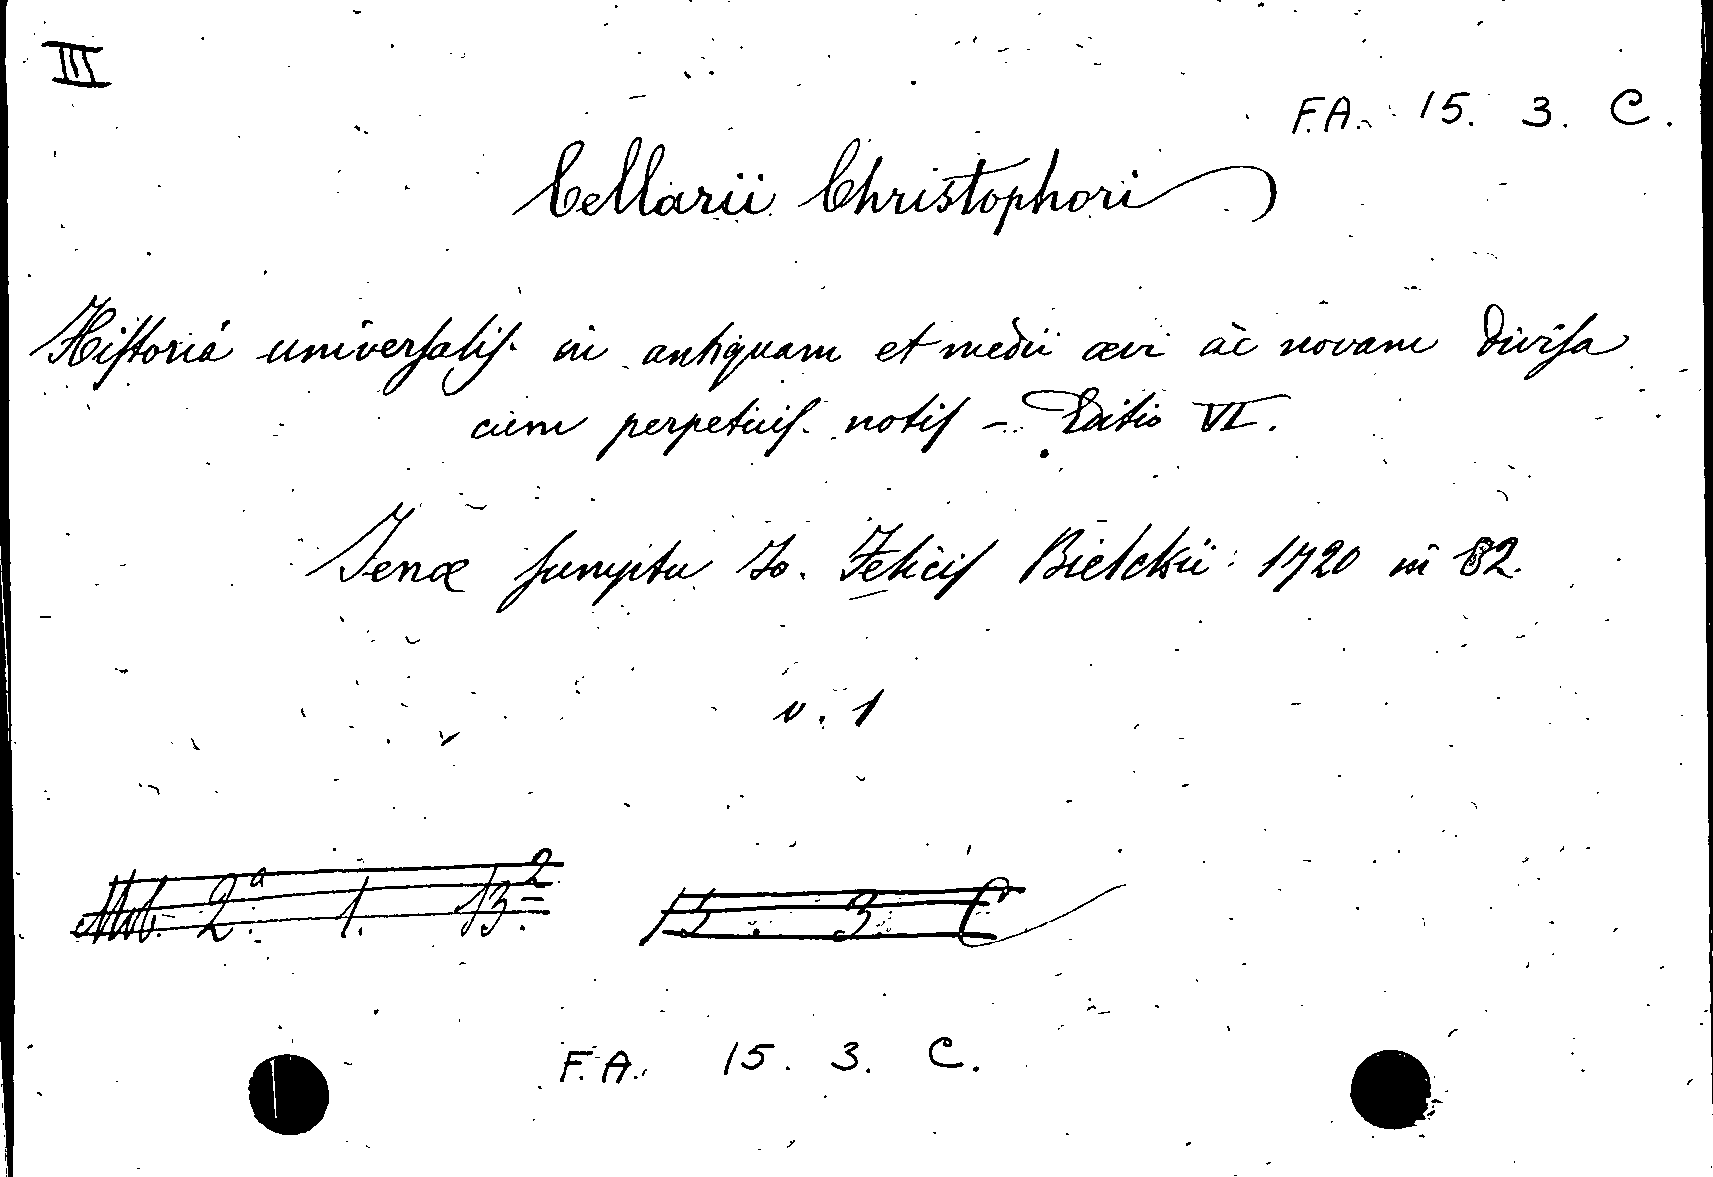 III
F.A. 15. 3. C.
Cellarii Christophori
Historia universalis in antiquam et medii ævi ac novam divisa
cum perpetuis notis - Editio VI.
Jenæ sumptu Jo. Felicis Bielckii 1720 in 82.
v. 1
2.a 1. 13.2 15. 3. C
F.A. 15. 3. C.